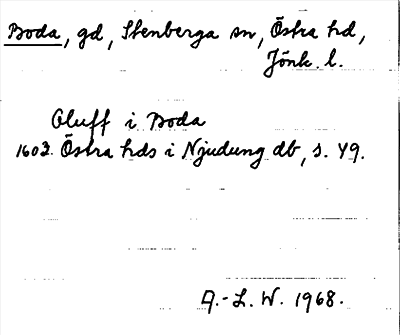 Boda, gd, Stenberga sn, Östra hd,
Jönk. l.
Oluff i Boda
1602. Östra hds i Njudung db, s. 49.
A.-L. W. 1968.